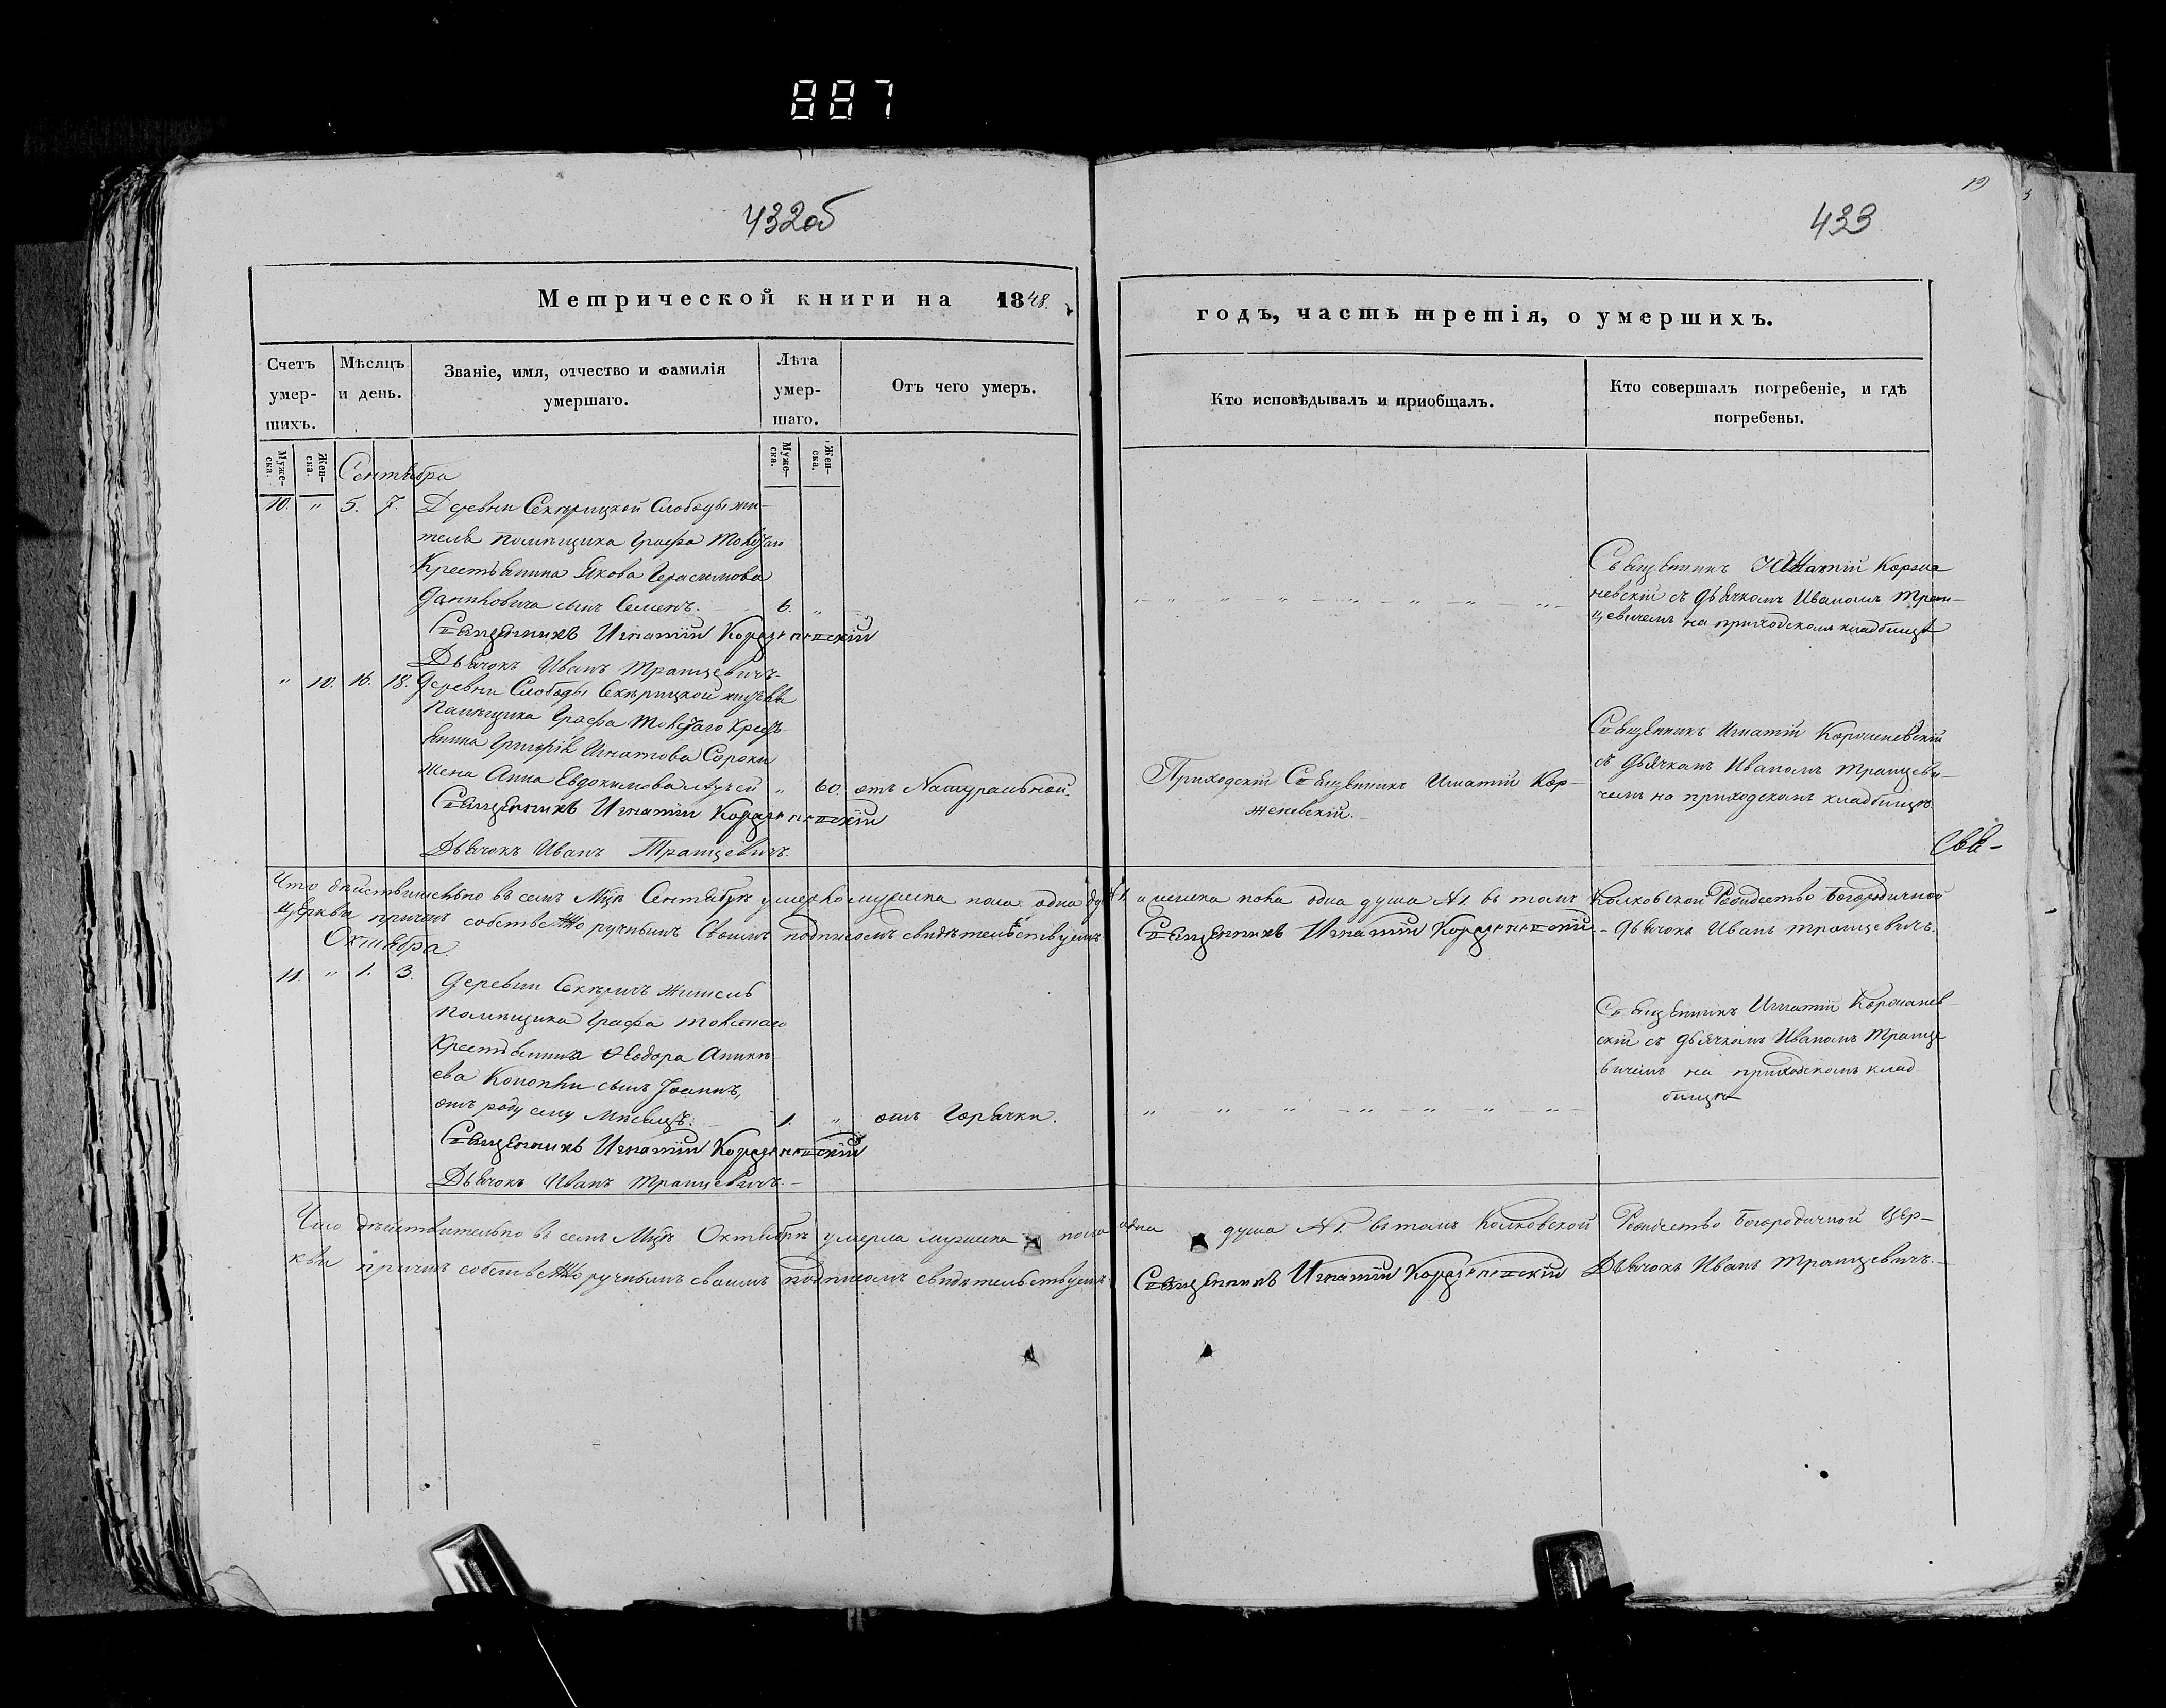 887
432об
433
19
Метрической книги на 1848.
годъ, часть третія, о умершихъ.
Счетъ умер-шихъ.
Мѣсяцъ и день.
Званіе, имя, отчество и фамилія умершаго.
Лѣта умер-шаго.
Отъ чего умеръ.
Кто исповѣдывалъ и пріобщалъ.
Кто совершалъ погребеніе, и гдѣ погребены.
Муже-ска.
Жен-ска.
Муже-ска.
Жен-ска.
Сентября
10. " 5. 7. Деревни Секѣрицкой Слободы жи-
теля помѣщика Графа
Крестьянина Якова Герасимова
сынъ Семенъ. 6. "
Священникъ Игнатій
Дьячокъ Иванъ Транцевичъ
Священникъ Игнатій
съ дьячкомъ Иваномъ Тран-
цевичемъ на приходскомъ кладбищѣ
" 10. 16. 18. Деревни Слободы Секѣрицкой
Помѣщика Графа
Григорія Игнатова Сороки
жена Анна Евдокимова " 60. отъ Натуральной.
Священникъ Игнатій
Дьячокъ Иванъ Транцевичъ.
Приходскій Священникъ Игнатій Кор-
женевскій.
Священникъ Игнатій Корженевскій
съ дьячкомъ Иваномъ Транцеви-
чемъ на приходскомъ кладбищѣ
Что дѣйствительно въ семъ Мцѣ Сентябрѣ умерло мужеска пола одна
и женска пола одна душа №1. въ томъ Колковской Рождество Богородичной
церкви причтъ собственно ручнымъ Своимъ подписомъ свидѣтельствуемъ
Священникъ Игнатій - дьячокъ Иванъ Транцевичъ.
Октября.
11. " 1. 3. Деревни Секѣричъ Житель
помѣщика Графа
Крестьянина Ѳеодора Аникѣ-
ева Конопки сынъ Іоаннъ,
отъ роду ему Мѣсяцъ. 1. " отъ Горячки.
Священникъ Игнатій
Дьячокъ Иванъ Транцевичъ.
Священникъ Игнатій Корженев-
скій съ дьячкомъ Иваномъ Транце
вичемъ на приходскомъ клад
бищѣ
Что дѣйствительно въ семъ Мцѣ Октябрѣ умерла мужеска пола одна душа №1. въ томъ Колковской Рождество Богородичной Цер-
кви причтъ собственно ручнымъ своимъ подписомъ свидѣтельствуемъ
Священникъ Игнатій Дьячокъ Иванъ Транцевичъ.